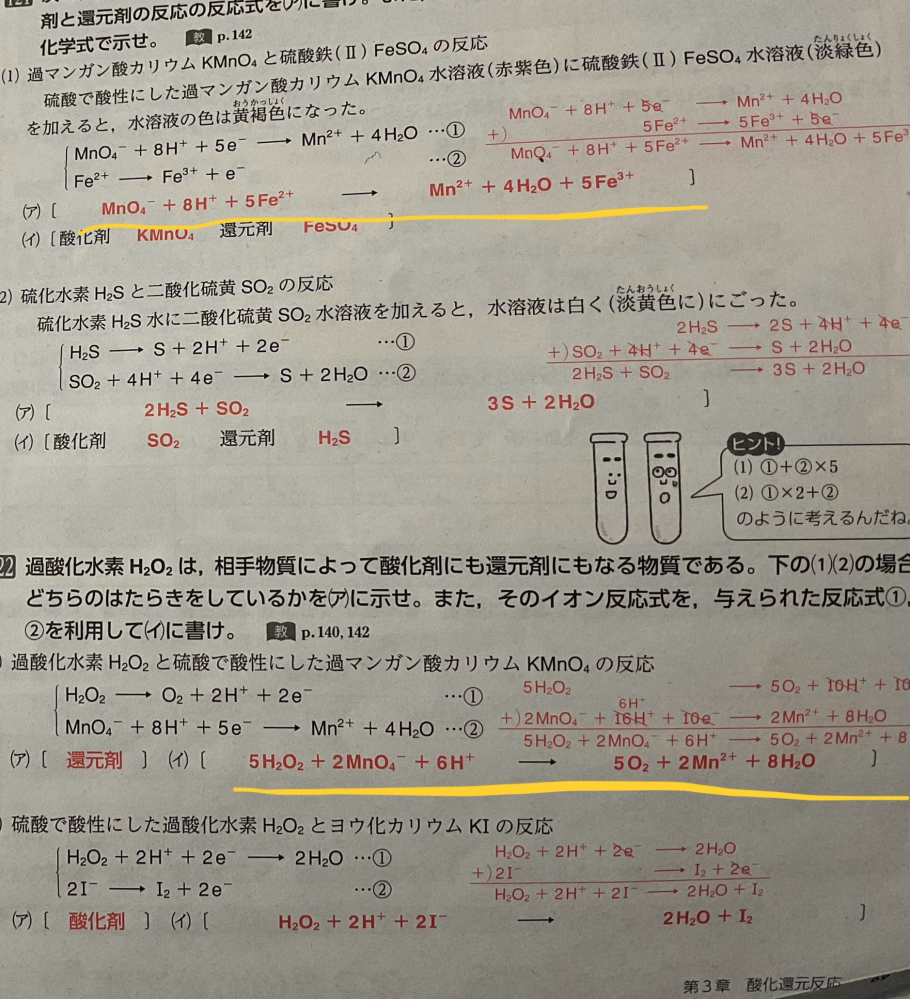 剤と還元剤の反応の反応式を(ア)に書け。
化学式で示せ。 教 p.142
(1) 過マンガン酸カリウム KMnO₄ と硫酸鉄(Ⅱ) FeSO₄ の反応
硫酸で酸性にした過マンガン酸カリウム KMnO₄ 水溶液(赤紫色)に硫酸鉄(Ⅱ) FeSO₄ 水溶液(淡緑色)
たんりょくしょく
を加えると，水溶液の色は黄褐色になった。
おうかっしょく
MnO₄⁻ + 8H⁺ + 5e⁻ ⟶ Mn²⁺ + 4H₂O …①
Fe²⁺ ⟶ Fe³⁺ + e⁻ …②
MnO₄⁻ + 8H⁺ + 5e⁻ ⟶ Mn²⁺ + 4H₂O
+) 5Fe²⁺ ⟶ 5Fe³⁺ + 5e⁻
MnO₄⁻ + 8H⁺ + 5Fe²⁺ ⟶ Mn²⁺ + 4H₂O + 5Fe³
(ア) [ MnO₄⁻ + 8H⁺ + 5Fe²⁺ ⟶ Mn²⁺ + 4H₂O + 5Fe³⁺ ]
(イ) [ 酸化剤 KMnO₄ 還元剤 FeSO₄ ]
2) 硫化水素 H₂S と二酸化硫黄 SO₂ の反応
硫化水素 H₂S 水に二酸化硫黄 SO₂ 水溶液を加えると，水溶液は白く(淡黄色に)にごった。
たんおうしょく
H₂S ⟶ S + 2H⁺ + 2e⁻ …①
SO₂ + 4H⁺ + 4e⁻ ⟶ S + 2H₂O …②
2H₂S ⟶ 2S + 4H⁺ + 4e⁻
+) SO₂ + 4H⁺ + 4e⁻ ⟶ S + 2H₂O
2H₂S + SO₂ ⟶ 3S + 2H₂O
(ア) [ 2H₂S + SO₂ ⟶ 3S + 2H₂O ]
(イ) [ 酸化剤 SO₂ 還元剤 H₂S ]
ヒント!
(1) ①+②×5
(2) ①×2+②
のように考えるんだね。
22 過酸化水素 H₂O₂ は，相手物質によって酸化剤にも還元剤にもなる物質である。下の(1)(2)の場合
どちらのはたらきをしているかを(ア)に示せ。また，そのイオン反応式を，与えられた反応式①，
②を利用して(イ)に書け。 教 p.140, 142
) 過酸化水素 H₂O₂ と硫酸で酸性にした過マンガン酸カリウム KMnO₄ の反応
H₂O₂ ⟶ O₂ + 2H⁺ + 2e⁻ …①
MnO₄⁻ + 8H⁺ + 5e⁻ ⟶ Mn²⁺ + 4H₂O …②
5H₂O₂ ⟶ 5O₂ + 10H⁺ + 10
6H⁺
+) 2MnO₄⁻ + 16H⁺ + 10e⁻ ⟶ 2Mn²⁺ + 8H₂O
5H₂O₂ + 2MnO₄⁻ + 6H⁺ ⟶ 5O₂ + 2Mn²⁺ + 8
(ア) [ 還元剤 ] (イ) [ 5H₂O₂ + 2MnO₄⁻ + 6H⁺ ⟶ 5O₂ + 2Mn²⁺ + 8H₂O ]
) 硫酸で酸性にした過酸化水素 H₂O₂ とヨウ化カリウム KI の反応
H₂O₂ + 2H⁺ + 2e⁻ ⟶ 2H₂O …①
2I⁻ ⟶ I₂ + 2e⁻ …②
H₂O₂ + 2H⁺ + 2e⁻ ⟶ 2H₂O
+) 2I⁻ ⟶ I₂ + 2e⁻
H₂O₂ + 2H⁺ + 2I⁻ ⟶ 2H₂O + I₂
(ア) [ 酸化剤 ] (イ) [ H₂O₂ + 2H⁺ + 2I⁻ ⟶ 2H₂O + I₂ ]
第3章 酸化還元反応